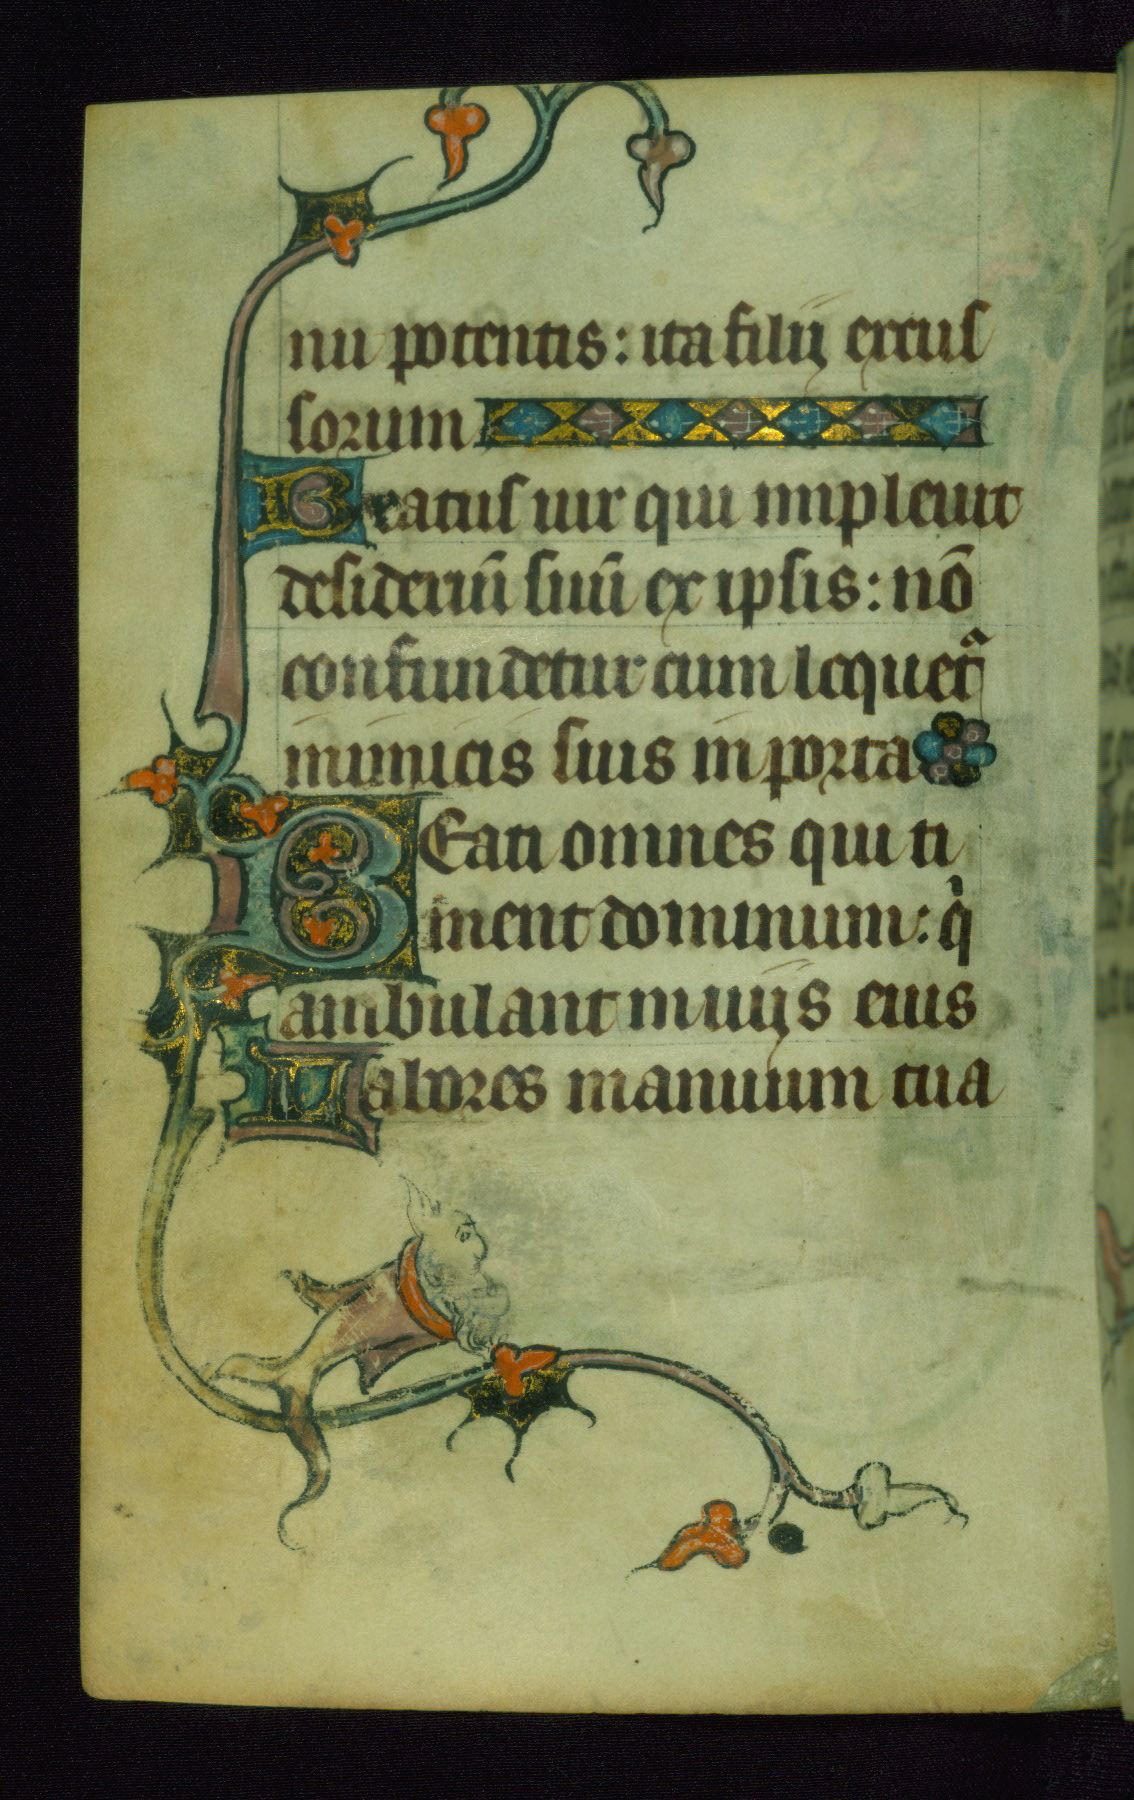 nu potentis: ita filij excus
sorum
Beatus uir qui impleuit
desideriū suū ex ipsis: nō
confundetur cum loquetᷓ
inimicis suis in porta
BEati omnes qui ti
ment dominum: qͥ
ambulant in uijs eius
Labores manuum tua